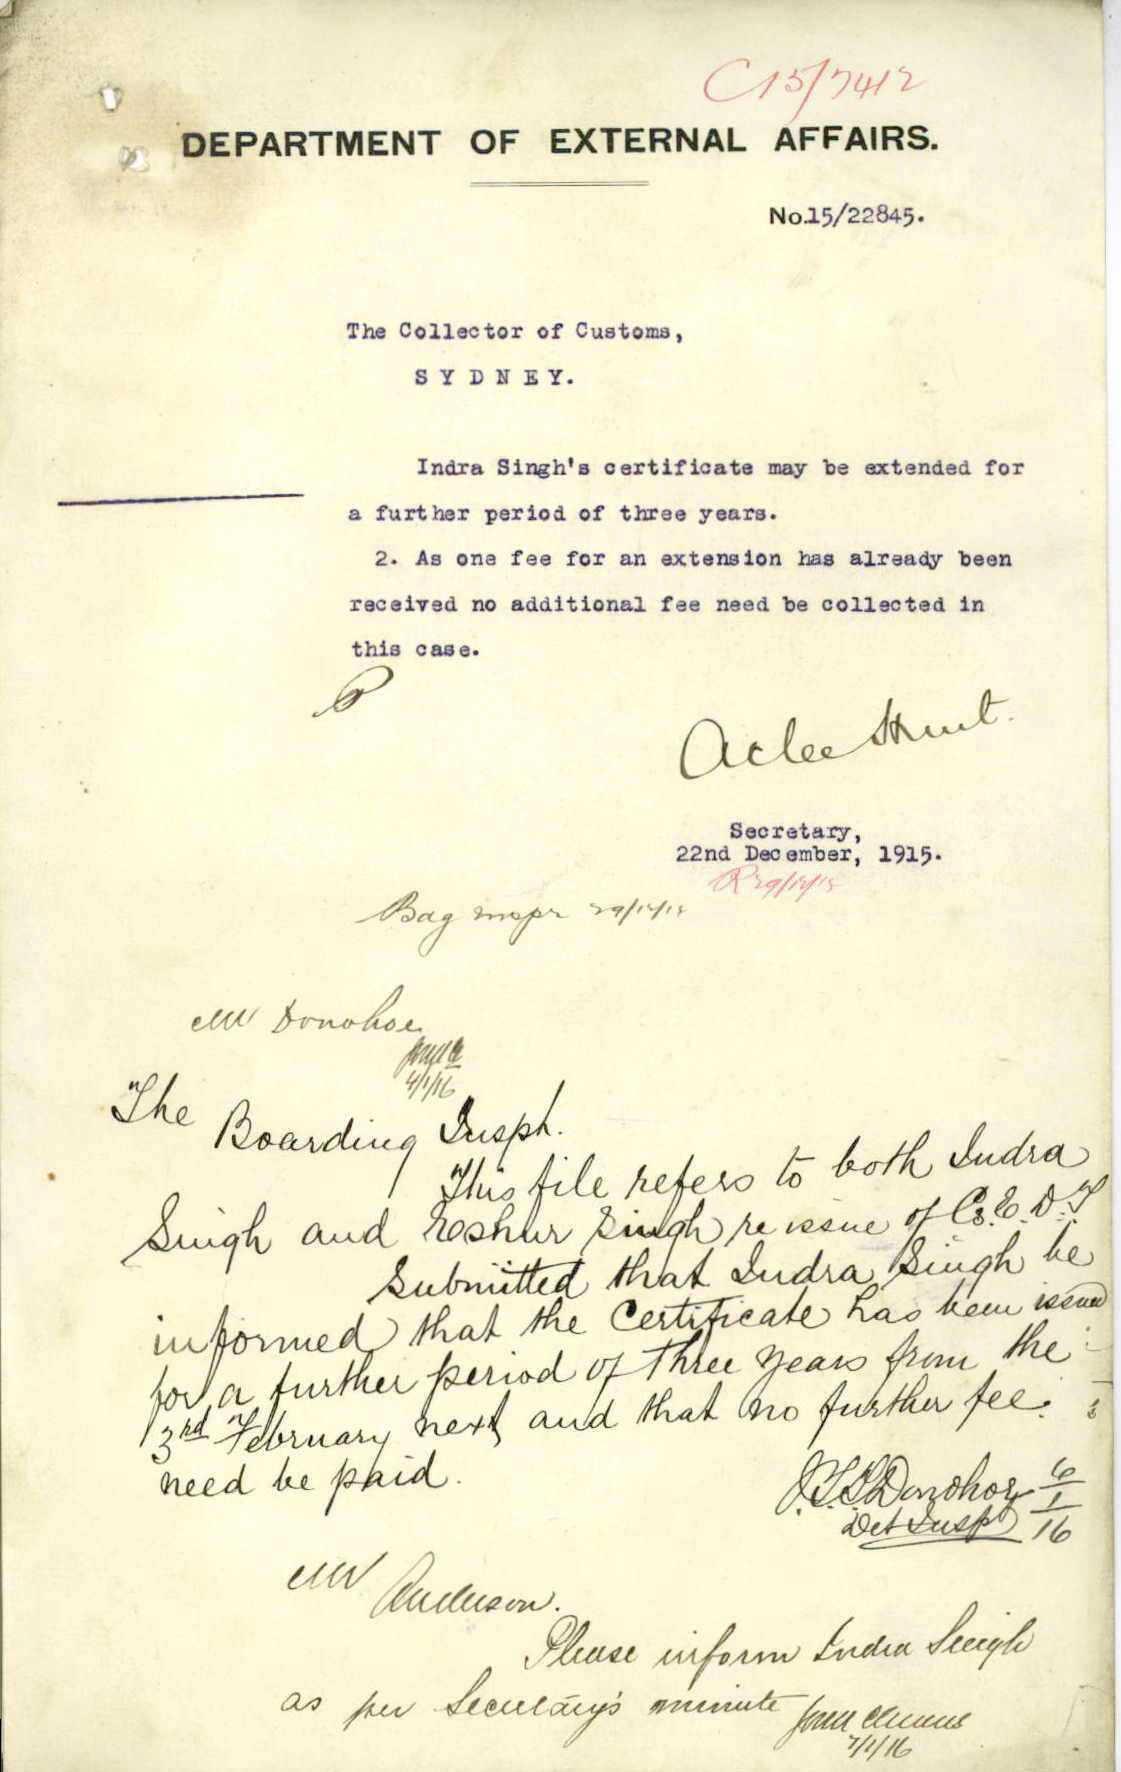 C15/7412
DEPARTMENT OF EXTERNAL AFFAIRS.
No.15/22845.
The Collector of Customs,
SYDNEY.
Indra Singh's certificate may be extended for
a further period of three years.
2. As one fee for an extension has already been
received no additional fee need be collected in
this case.
Atlee Hunt.
Secretary,
22nd December, 1915.
R 29/12/15
Bag Inspr 29/12/15
Mr Donohoe
4/1/16
The
Boarding Inspr.
This file refers to both Indra
Singh and Eeshur Singh re issue of C.E.D.T
Submitted that Indra Singh be
informed that the Certificate has been issued
for a further period of three years from the
3rd February next and that no further fee
need be paid.
J.T.T. Donohoe 6/1/16
Det Inspr
Mr
Anderson.
Please inform Indra Singh
as per Secretary's minute
7/1/16